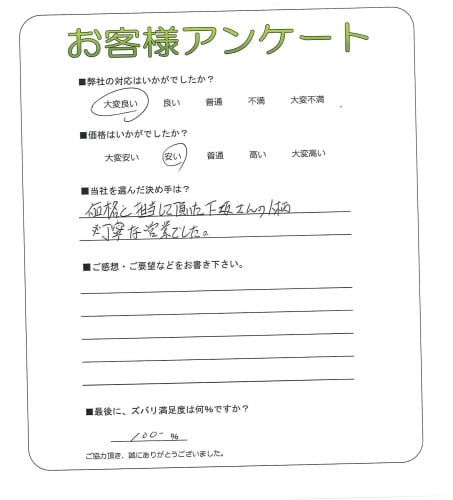 お客様アンケート
■弊社の対応はいかがでしたか？
大変良い 良い 普通 不満 大変不満
■価格はいかがでしたか？
大変安い 安い 普通 高い 大変高い
■当社を選んだ決め手は？
価格と担当して頂いた下坂さんの人柄
丁寧な営業でした。
■ご感想・ご要望などをお書き下さい。
■最後に、ズバリ満足度は何％ですか？
100- %
ご協力頂き、誠にありがとうございました。